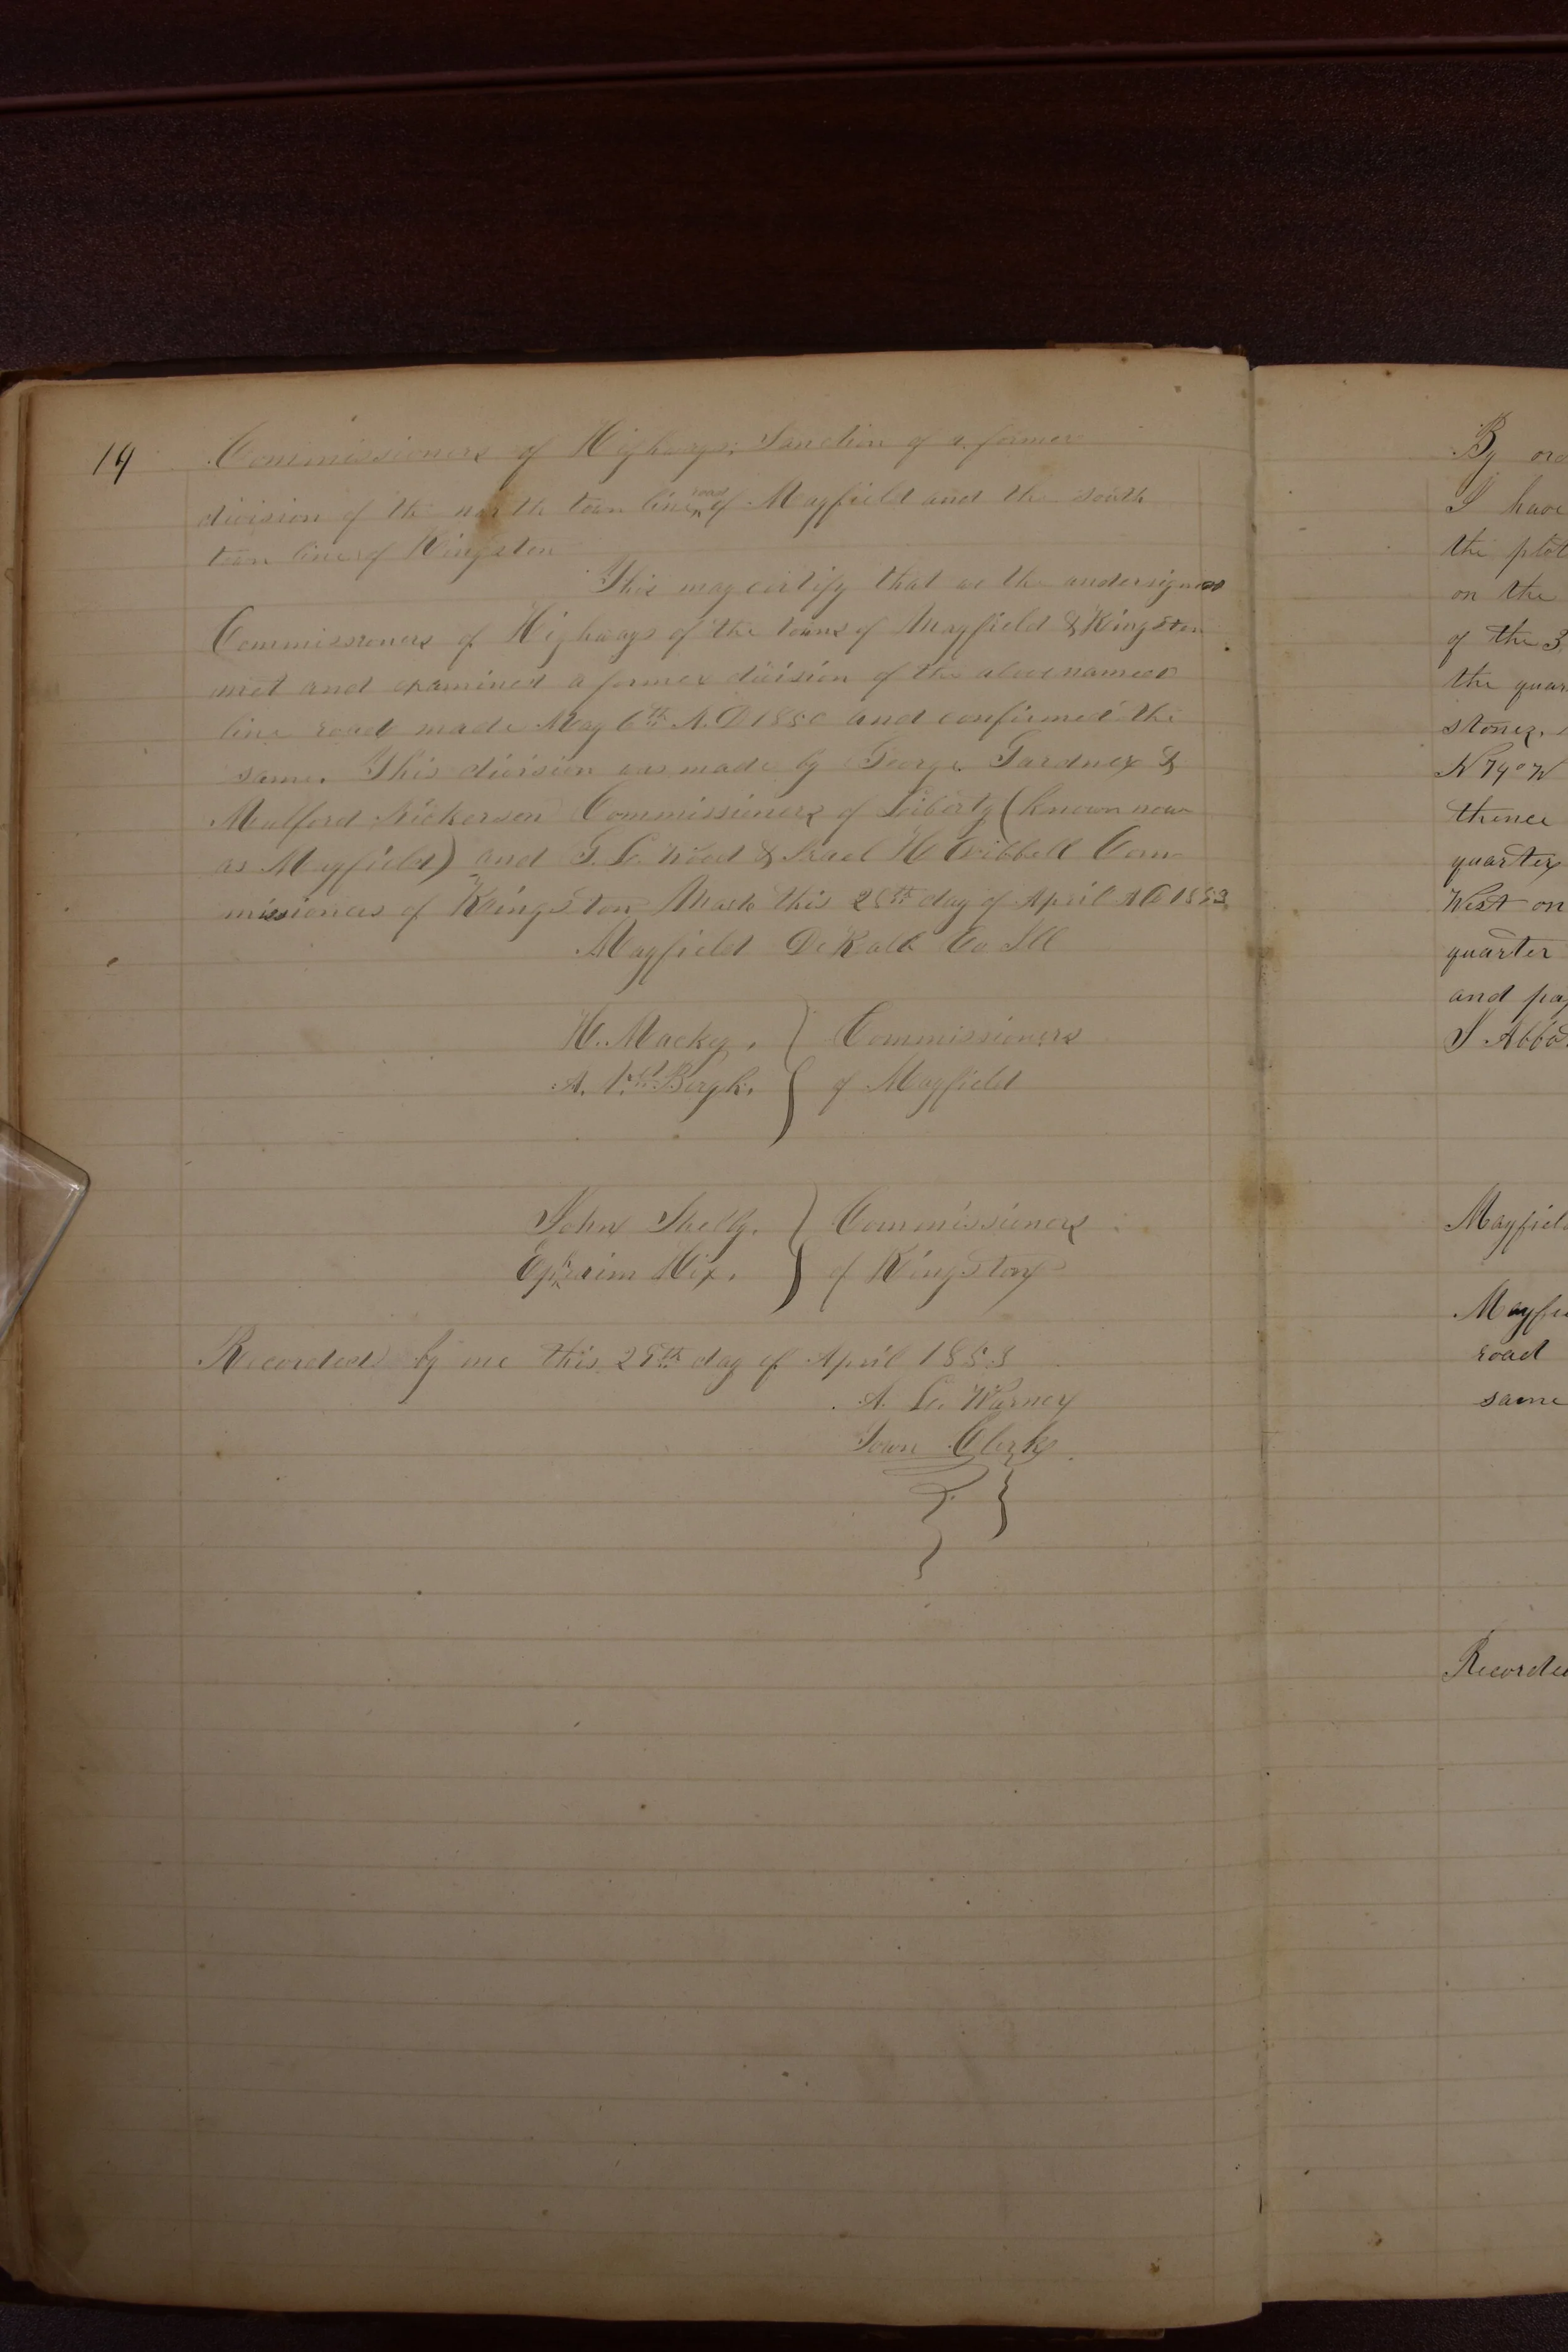 14
Commissioners of Highways; Sanction of a former
division of the north town line road of Mayfield and the south
town line of Kingston
This may certify that we the undersigned
Commissioners of Highways of the towns of Mayfield & Kingston
met and examined a former division of the above named
line road made May 6th A.D 1850 and confirmed the
same. This division was made by George Gardner &
Mulford Nickerson Commissioners of Liberty (known now
as Mayfield) and G. L. Wood & Israel H Cribbell Com-
missioners of Kingston this 28th day of April AD 1853
Mayfield DeKalb Co Ill
H. Mackey. } Commissioners
A. of Mayfield
John Shelly. } Commissioners
Ephraim Hix. } of Kingston
Recorded by me this 28th day of April 1853
A. L. Warner
Town Clerk
By
I have
the plot
on the
of the 3
the quar
stone,
N 74° W
thence
quarter
West on
quarter
and pay
S Abbo
Mayfield
Mayfie
road
same
Recorded